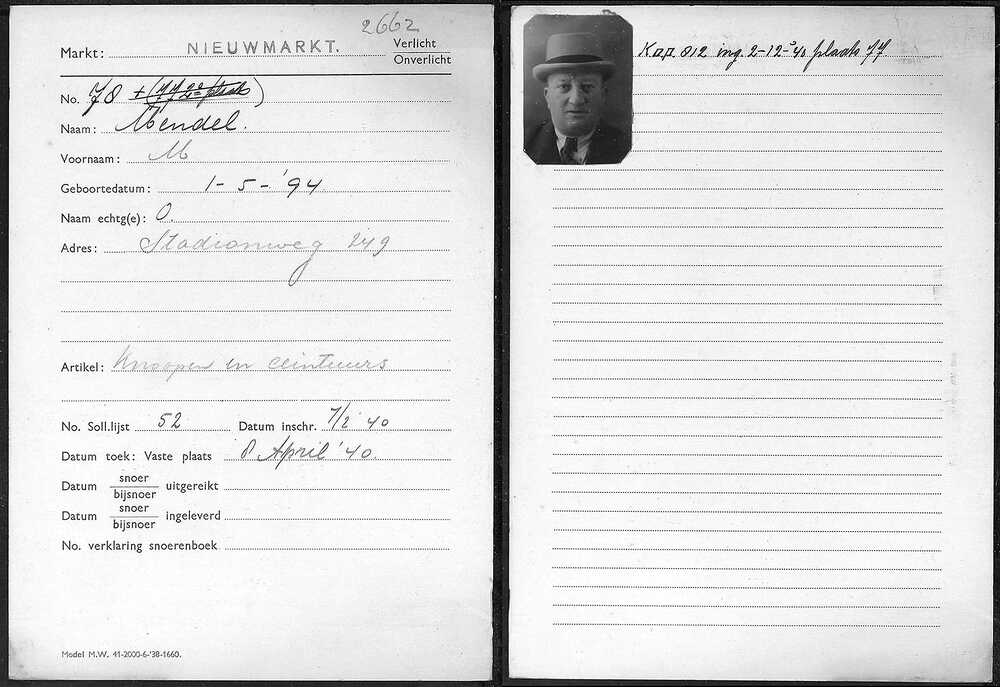 2662
Markt: NIEUWMARKT. Verlicht
Onverlicht
No. 78 + ( )
Naam: Mendel.
Voornaam: M
Geboortedatum: 1-5-'94
Naam echtg(e): O.
Adres: Stadionweg 249
Artikel: Knoopen en ceintuurs
No. Soll.lijst 52 Datum inschr. 7/2 '40
Datum toek: Vaste plaats 8 April '40.
Datum snoer/bijsnoer uitgereikt
Datum snoer/bijsnoer ingeleverd
No. verklaring snoerenboek
Model M.W. 41-2000-6-'38-1660.
Kap 812 ing. 2-12-'40 plaats 77